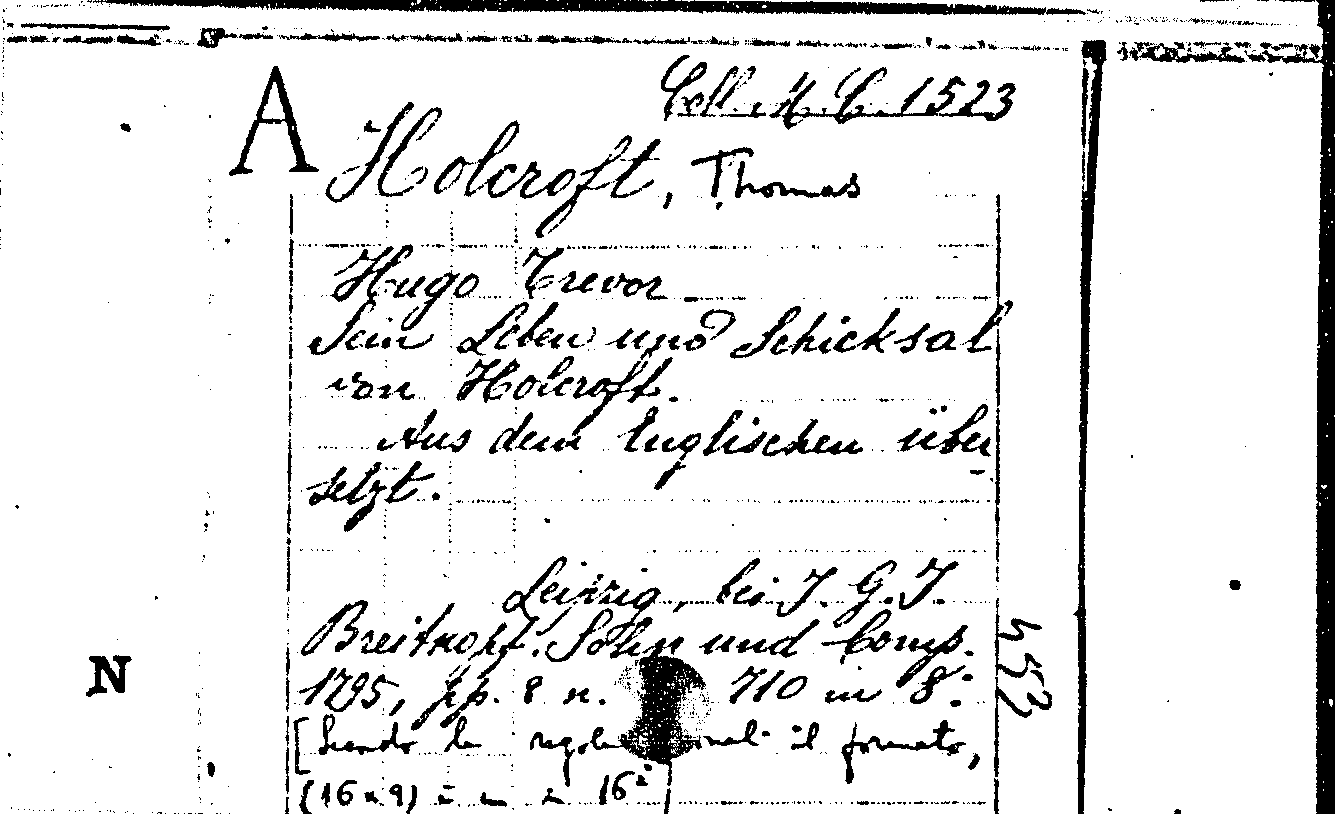 A
Coll. M. C. 1523
Holcroft, Thomas
Hugo Trevor
Sein Leben und Schicksal
von Holcroft.
Aus dem Englischen über
setzt.
Leipzig, bei J. G. J.
Breitkopf. Sohn und Comp.
N
1795, pp. 8 n. 710 in 8°
453
[Secondo le il formato,
(16 x 9) è in 16°]